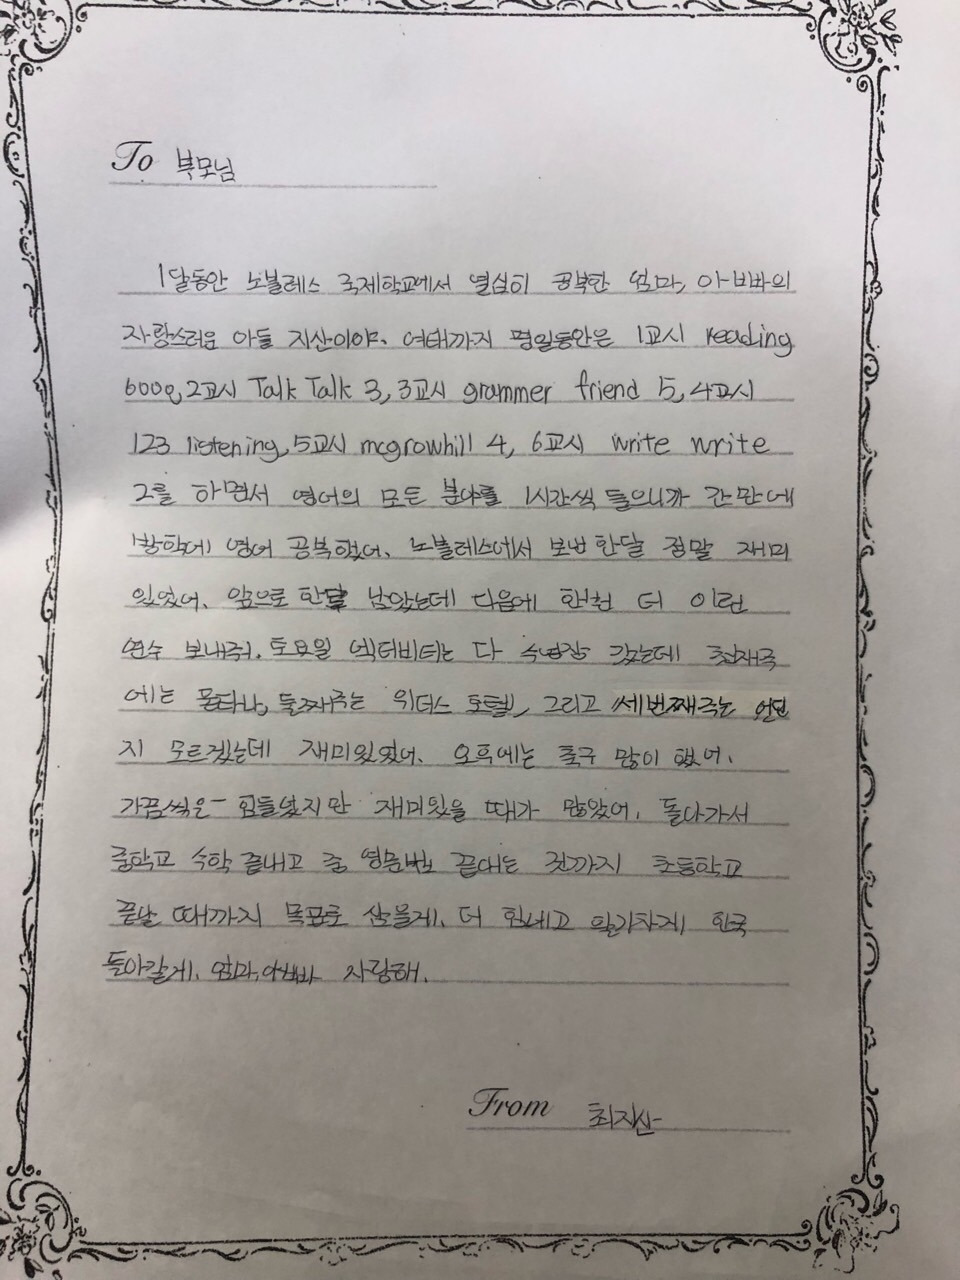 To 부모님
1달동안 노블레스 국제학교에서 열심히 공부한 엄마, 아빠의
자랑스러운 아들 지산이야. 여태까지 평일동안은 1교시 reading
600g, 2교시 Talk Talk 3, 3교시 grammer friend 5, 4교시
123 listening, 5교시 mcgrowhill 4, 6교시 write write
2를 하면서 영어의 모든 분야를 1시간씩 들으니까 간만에
방학에 영어 공부했어. 노블레스에서 보낸 한달 정말 재미
있었어. 앞으로 한달 남았는데 다음에 한번 더 이런
연수 보내줘. 토요일 엑티비티는 다 수영장 갔는데 첫째주
에는 몬타나, 둘째주는 위더스 호텔, 그리고 세번째주는 언딘
지 모르겠는데 재미있었어. 오후에는 축구 많이 했어.
가끔씩은 힘들었지만 재미있을 때가 많았어. 돌아가서
중학교 수학 끝내고 중 영문법 끝내는 것까지 초등학교
끝날 때까지 목표로 삼을게. 더 힘내고 활기차게 한국
돌아갈게. 엄마, 아빠 사랑해.
From 최지산